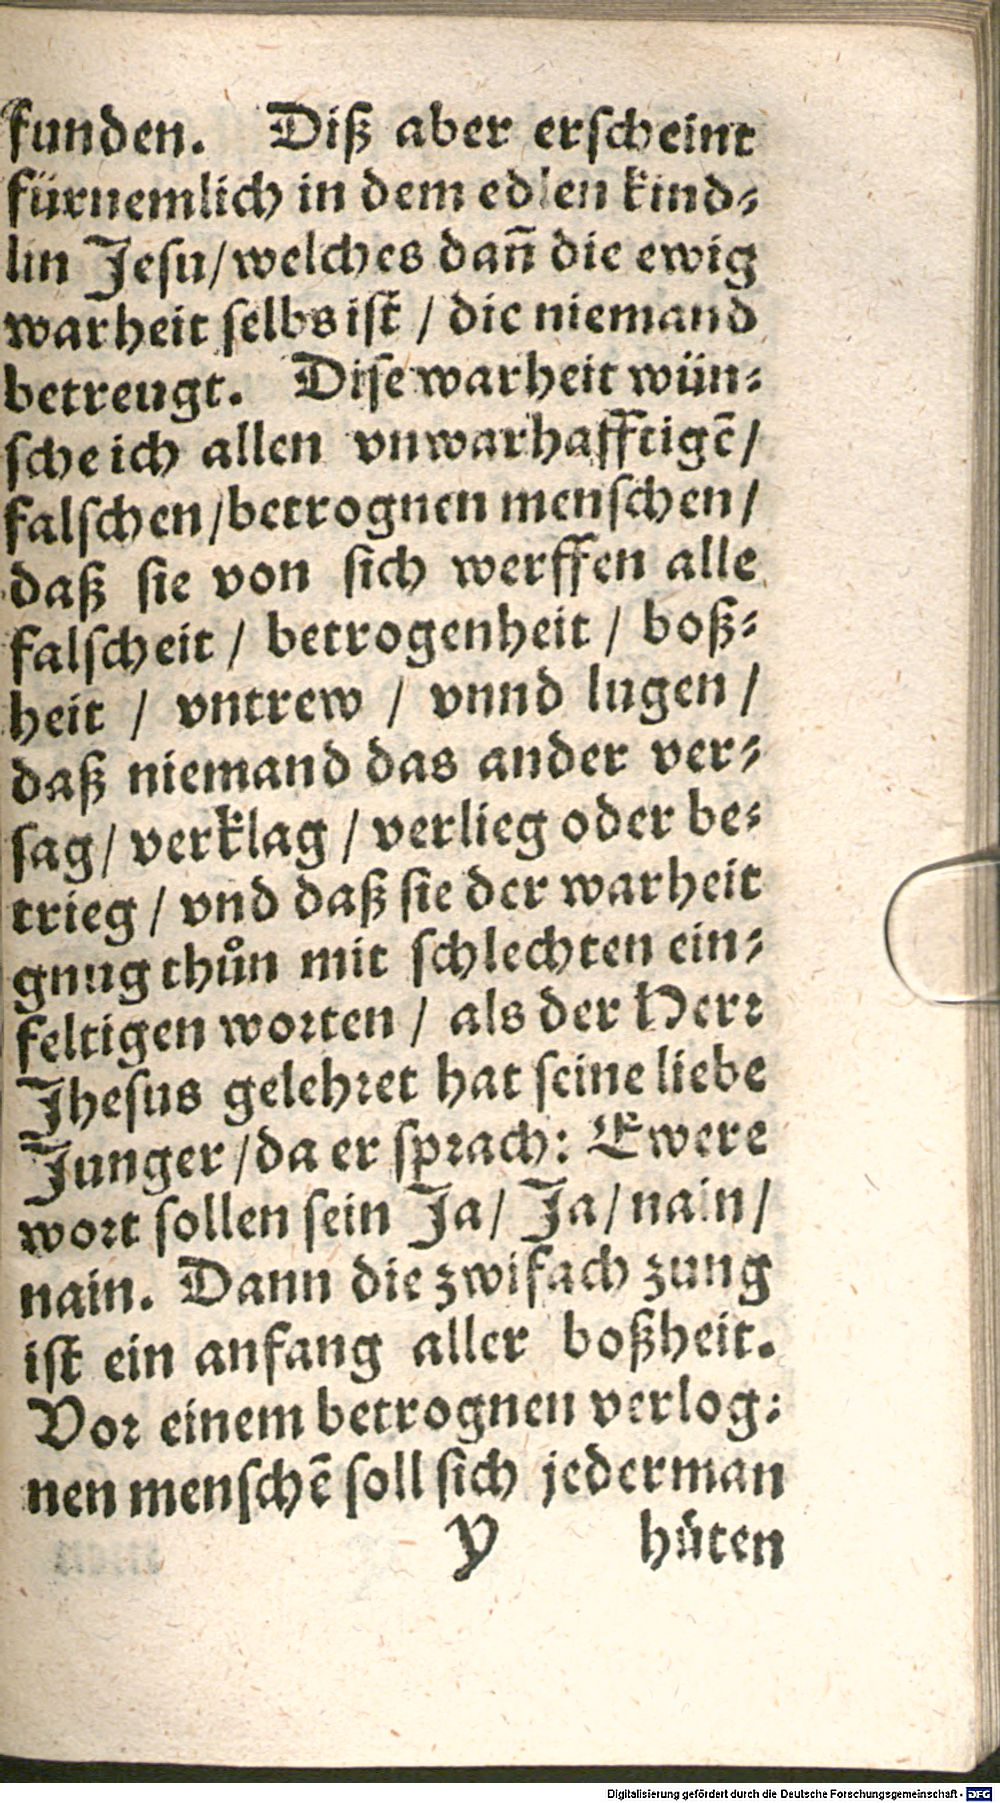 funden. Diß aber erscheint
fürnemlich in dem edlen kind⸗
lin Jesu/welches dañ die ewig
warheit selbs ist / die niemand
betreugt. Dise warheit wün⸗
sche ich allen vnwarhafftigẽ/
falschen/betrognen menschen/
daß sie von sich werffen alle
falscheit / betrogenheit / boß⸗
heit / vntrew / vnnd lugen /
daß niemand das ander ver⸗
sag/ verklag / verlieg oder be⸗
trieg / vnd daß sie der warheit
gnug thůn mit schlechten ein⸗
feltigen worten / als der Herr
Jhesus gelehret hat seine liebe
Junger/da er sprach: Ewere
wort sollen sein Ja/ Ja/nain/
nain. Dann die zwifach zung
ist ein anfang aller boßheit.
Vor einem betrognen verlog⸗
nen menschẽ soll sich jederman
y hüten
Digitalisierung gefördert durch die Deutsche Forschungsgemeinschaft - DFG